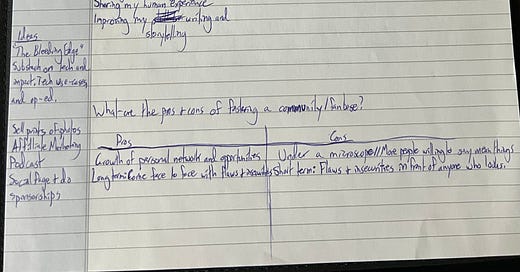 Sharing my human experience
Improving my writing and
storytelling
Ideas
"The Bleeding Edge"
Substack on tech and
impact, Tech use-cases,
and op-ed.
What are the pros + cons of fostering a community/fanbase?
Sell prints of photos
Affiliate Marketing
Podcast
Social Page + do
sponsorships
Pros
Cons
Growth of personal network and opportunities
Under a microscope//More people willing to say mean things
Long term: Come face to face with flaws + insecurities
Short term: Flaws + insecurities in front of anyone who looks.